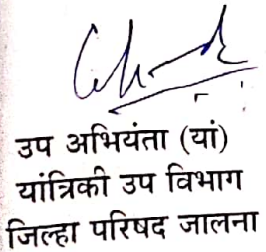 उप अभियंता (यां)
यांत्रिकी उप विभाग
जिल्हा परिषद जालना